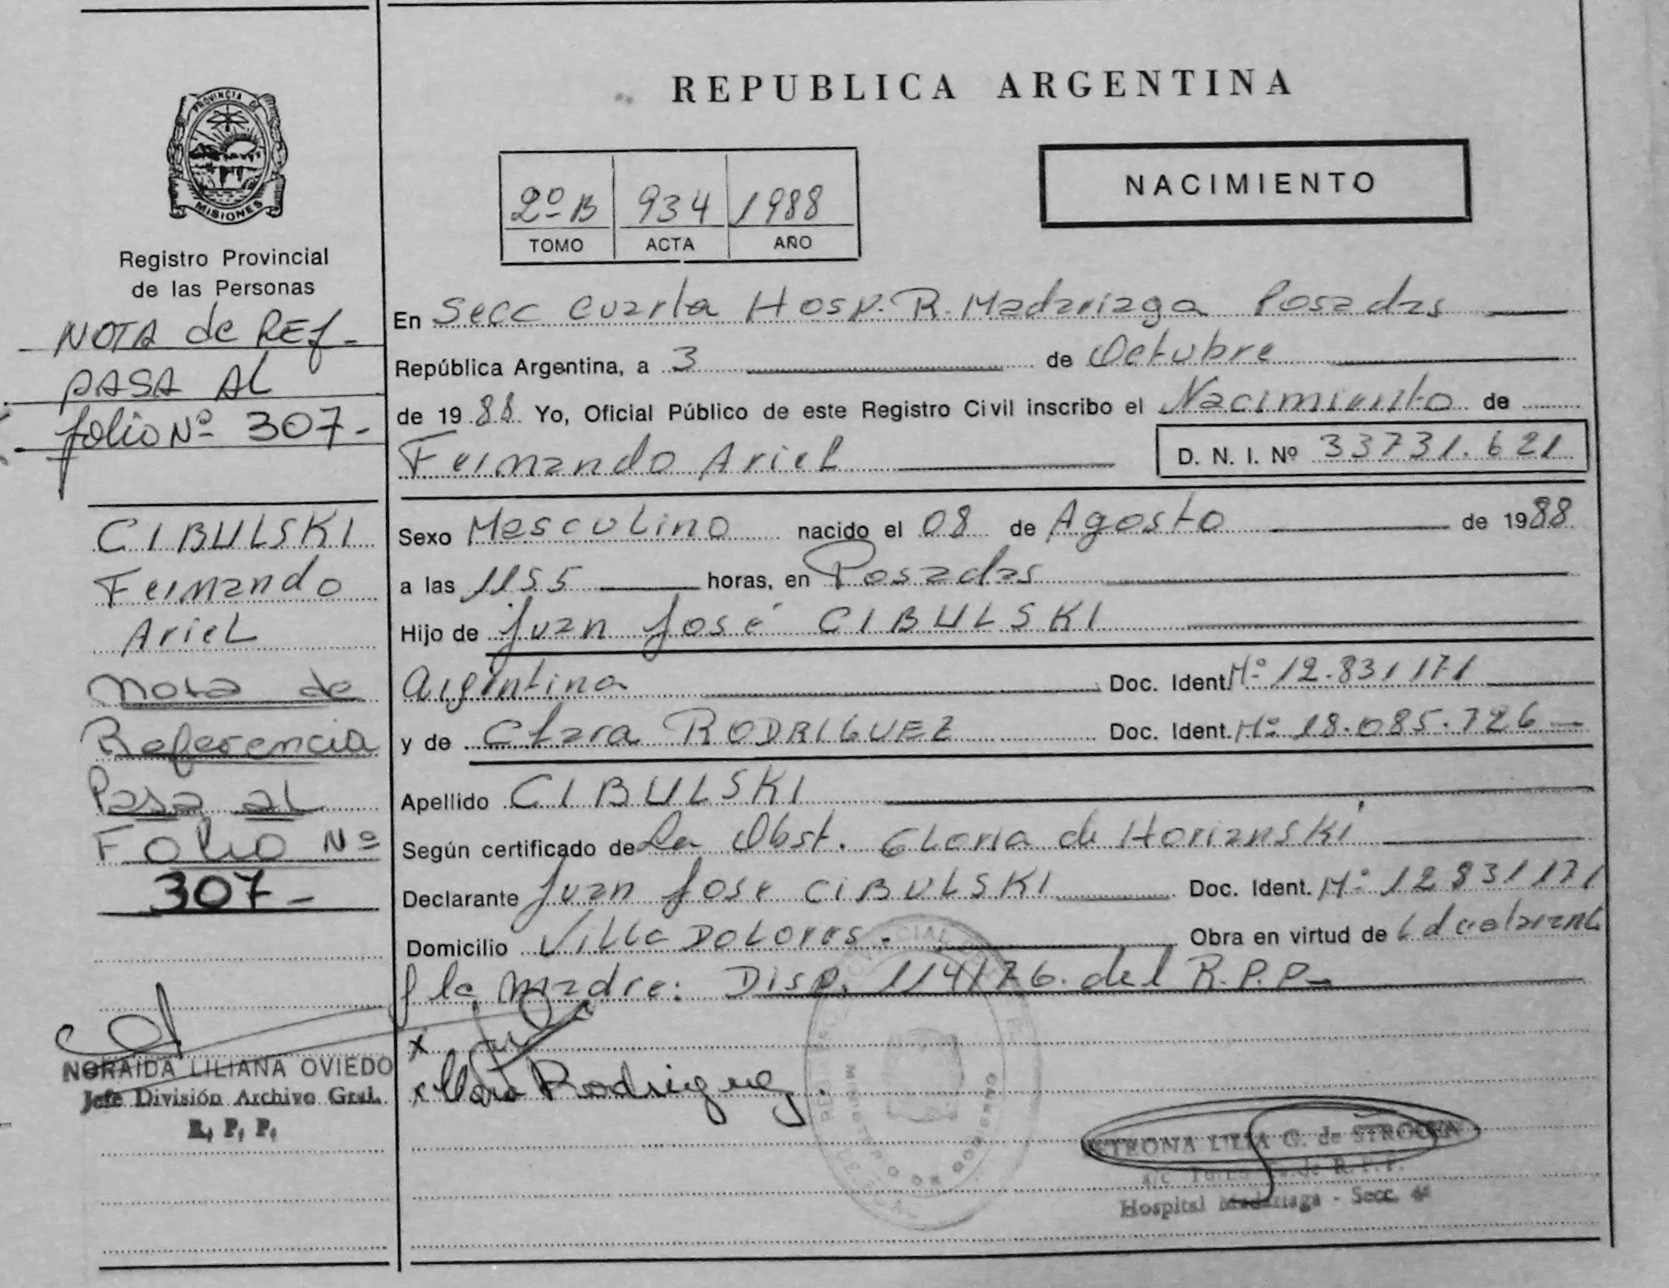 PROVINCIA DE
MISIONES
Registro Provincial
de las Personas
NOTA de REF-
PASA AL
folio Nº 307-
CIBULSKI
Fernando
Ariel
Nota de
Referencia
Pasa al
Folio Nº
307-
NORAIDA LILIANA OVIEDO
Jefe División Archivo Gral.
R. P. P.
REPUBLICA ARGENTINA
2º B 934 1988
TOMO ACTA AÑO
NACIMIENTO
En Secc Cuarta Hosp. R. Madariaga Posadas
República Argentina, a 3 de Octubre
de 1988 Yo, Oficial Público de este Registro Civil inscribo el Nacimiento de
Fernando Ariel D. N. I. Nº 33731.621
Sexo Masculino nacido el 08 de Agosto de 1988
a las 1155 horas, en Posadas
Hijo de Juan José CIBULSKI
Argentina Doc. Ident. Nº 12.831171
y de Clara RODRIGUEZ Doc. Ident. Nº 18.085.726-
Apellido CIBULSKI
Según certificado de La Obst. Gloria de Horianski
Declarante Juan Jose CIBULSKI Doc. Ident. Nº 12831171
Domicilio Villa Dolores. Obra en virtud de
la Madre: Disp. 114/76. del R.P.P-
x
x Clara Rodriguez.
PETRONA LILIA G. de
R. P. P.
Hospital Madariaga - Secc. 4ª